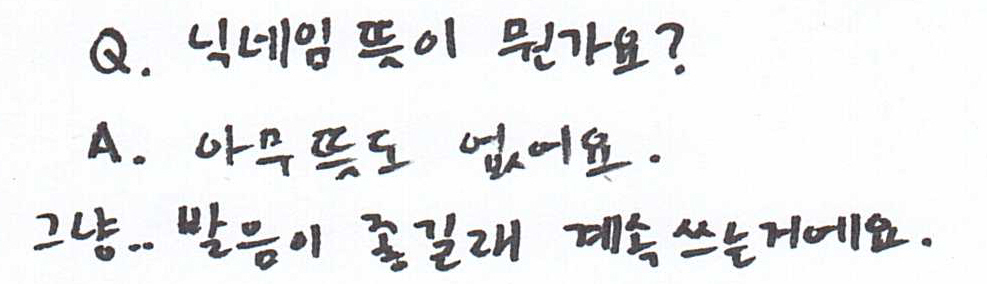 Q. 닉네임 뜻이 뭔가요?
A. 아무 뜻도 없어요.
그냥.. 발음이 좋길래 계속 쓰는거에요.